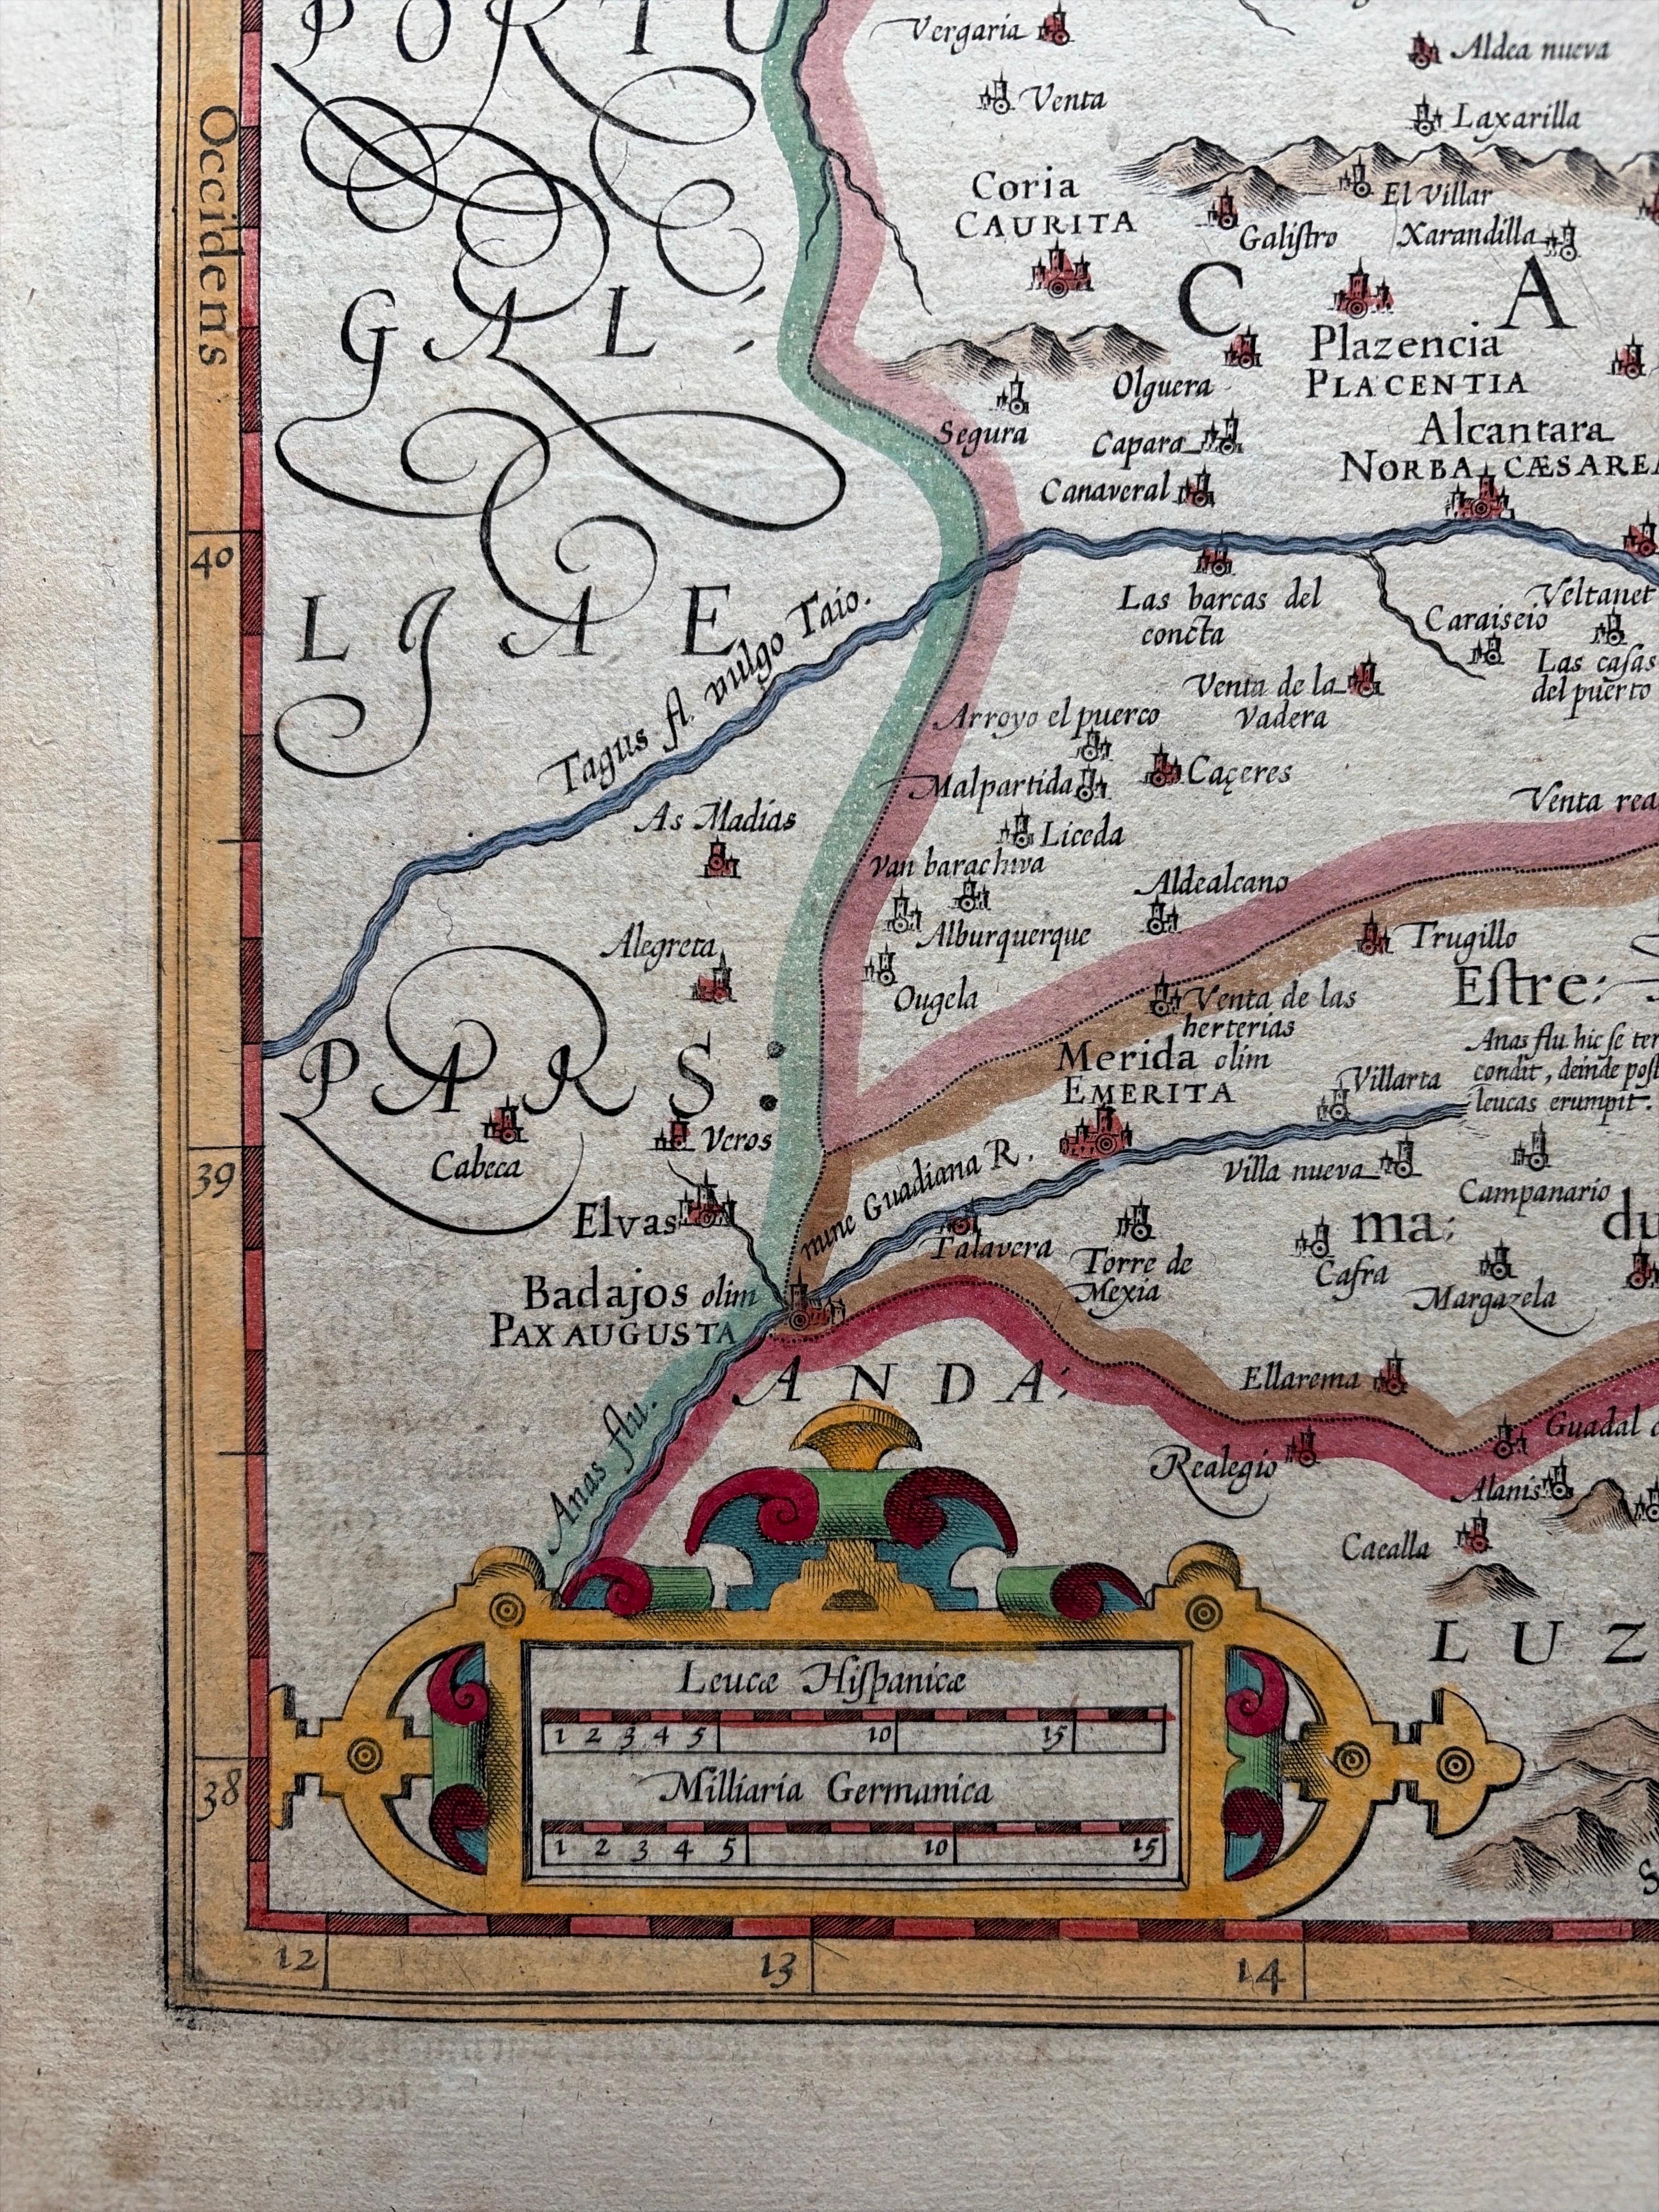 PORTU
GAL,
LJAE
PARS:
Occidens
Vergaria
Aldea nueva
Venta
Laxarilla
Coria
CAURITA
El Villar
Galiſtro
Xarandilla
C A
Plazencia
PLACENTIA
Olguera
Segura
Capara
Alcantara
NORBA CÆSAREA
Canaveral
40
Las barcas del
concta
Veltanet
Caraiseio
Las caſas
del puerto
Tagus fl. vulgo Taio.
Venta de la
Vadera
Arroyo el puerco
Malpartida
Caçeres
Venta rea
As Madias
Liceda
Van barachiva
Aldealcano
Alburquerque
Alegreta
Trugillo
Ougela
Eſtre:
Venta de las
herterias
Anas flu. hic ſe ter
condit, deinde poſt
leucas erumpit.
Merida olim
EMERITA
Villarta
Veros
Cabeca
39
nunc Guadiana R.
Villa nueva
Campanario
Elvas
ma: du
Talavera
Torre de
Mexia
Cafra
Margazela
Badajos olim
PAX AUGUSTA
ANDA:
Ellarema
Anas flu.
Guadal c
Realegio
Alanis
Cacalla
LUZ
Leucæ Hiſpanicæ
1 2 3 4 5 10 15
Milliaria Germanica
1 2 3 4 5 10 15
38
S
12 13 14